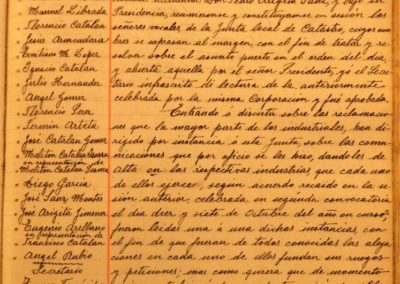 Manuel Librada
Florencio Catalan
Jesus Armendariz
Emiliano M. Lopez
Ignacio Catalan
Julio Hernandez
Angel Gomez
Florencio Jera
Fermin Arteta
José Catalan Gomez
Meliton Catalan
en representación
Meliton Catalan Lama
Diego Garcia
José Sanz Montes
José Arigita Jimenez
Eugenio Arellano
en representación de
Francisco Catalan
Angel Rubio
Secretario
Presidencia, reunieronse y constituyeronse en sesión los
señores vocales de la Junta local de Catastro, cuyos nom-
bres se expresan al margen, con el fin de tratar y re-
solver sobre el asunto puesto en el orden del dia
y abierta aquella por el señor Presidente, yo el Secre-
tario infrascrito di lectura de la anteriormente
celebrada por la misma Corporación y fue aprobada.
Entrando a discutir sobre las reclamacio-
nes que la mayor parte de los industriales, han di-
rigido por instancia a esta Junta, sobre las comu-
nicaciones que por oficio se les hizo, dandoles de
alta en las respectivas industrias que cada uno
de ellos ejerce, segun acuerdo recaido en la se-
sión anterior, celebrada en segunda convocatoria
el dia diez y siete de Octubre del año en curso,
fueron leidas una a una dichas instancias, con
el fin de que fueran de todos conocidas las alega-
ciones en cada uno de ellos fundan sus ruegos
y peticiones; mas como quiera que de momento